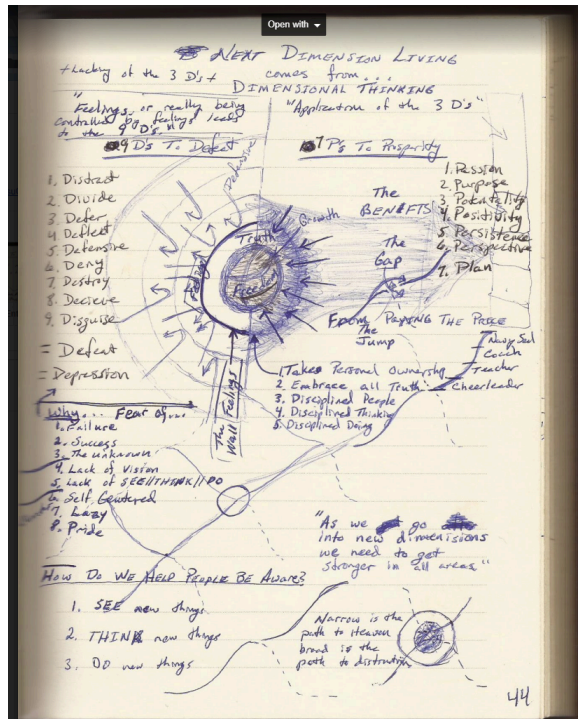 Open with
NEXT DIMENSION LIVING
+ Lacking of the 3 D's +
comes from...
DIMENSIONAL THINKING
"Feelings, or really being
controlled by feelings leads
to the 9 D's."
"Application of the 3 D's"
9 D's To Defeat
7 P's To Prosperity
1. Distract
2. Divide
3. Defer
4 Deflect
5. Defensive
6. Deny
7. Destroy
8. Decieve
9. Disguise
= Defeat
= Depression
Defensive
Growth
Truth
Freedom
The
BENEFITS
The
Gap
1. Passion
2. Purpose
3. Potentality
4. Positivity
5 Persistence
6. Perspective
7. Plan
From Paying The Price
The
Jump
Navy Seal
Coach
Teacher
Cheerleader
1. Takes Personal Ownership
2. Embrace all Truth
3. Disciplined People
4. Disciplined Thinking
5. Disciplined Doing
The Feelings
Wall
Why... Fear of...
1. Failure
2. Success
3. The unknown
4. Lack of Vision
5. Lack of SEE//THINK//DO
6. Self Centered
7. Lazy
8. Pride
"As we go
into new dimensions
we need to get
stronger in all areas."
How Do We Help People Be Aware?
1. SEE new things
2. THINK new things
3. DO new things
Narrow is the
path to Heaven
broad is the
path to distruction
44